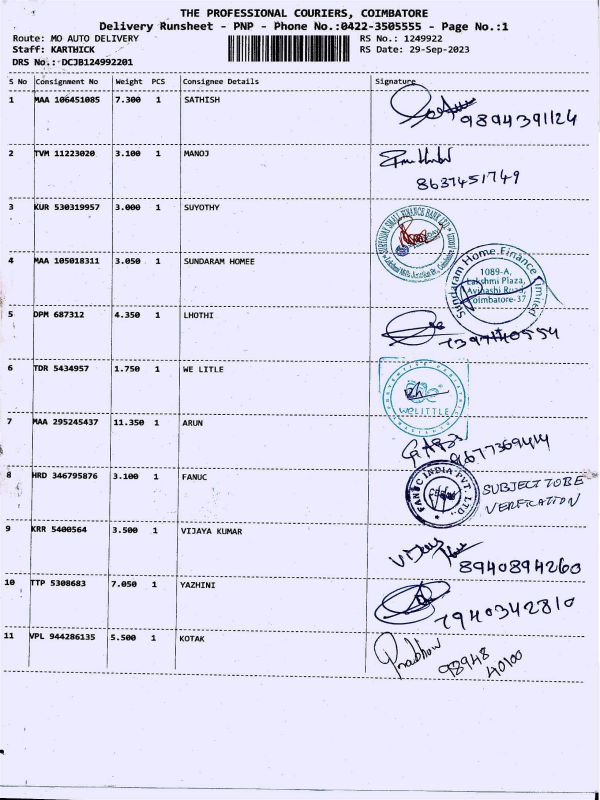 THE PROFESSIONAL COURIERS, COIMBATORE
Delivery Runsheet - PNP - Phone No.:0422-3505555 - Page No.:1
Route: MO AUTO DELIVERY RS No.: 1249922
Staff: KARTHICK RS Date: 29-Sep-2023
DRS No.: DCJB124992201
S No Consignment No Weight PCS Consignee Details Signature
1 MAA 106451085 7.300 1 SATHISH
9894391124
2 TVM 11223020 3.100 1 MANOJ
8637451749
3 KUR 530319957 3.000 1 SUYOTHY
SURYODAY SMALL FINANCE BANK LTD
Lakshmi Mills Junction Br, Coimbatore
4 MAA 105018311 3.050 1 SUNDARAM HOMEE
Sundaram Home Finance Limited
1089-A,
Lakshmi Plaza,
Avinashi Road,
Coimbatore-37
5 DPM 687312 4.350 1 LHOTHI
7397440554
6 TDR 5434957 1.750 1 WE LITLE
WELITTLE
7 MAA 295245437 11.350 1 ARUN
9677369414
8 HRD 346795876 3.100 1 FANUC
FANUC INDIA PVT. LTD.,
SUBJECT TO BE
VERFICATION
9 KRR 5400564 3.500 1 VIJAYA KUMAR
8940894260
10 TTP 5308683 7.050 1 YAZHINI
7940342810
11 VPL 944286135 5.500 1 KOTAK
Prabhow
98948
40100